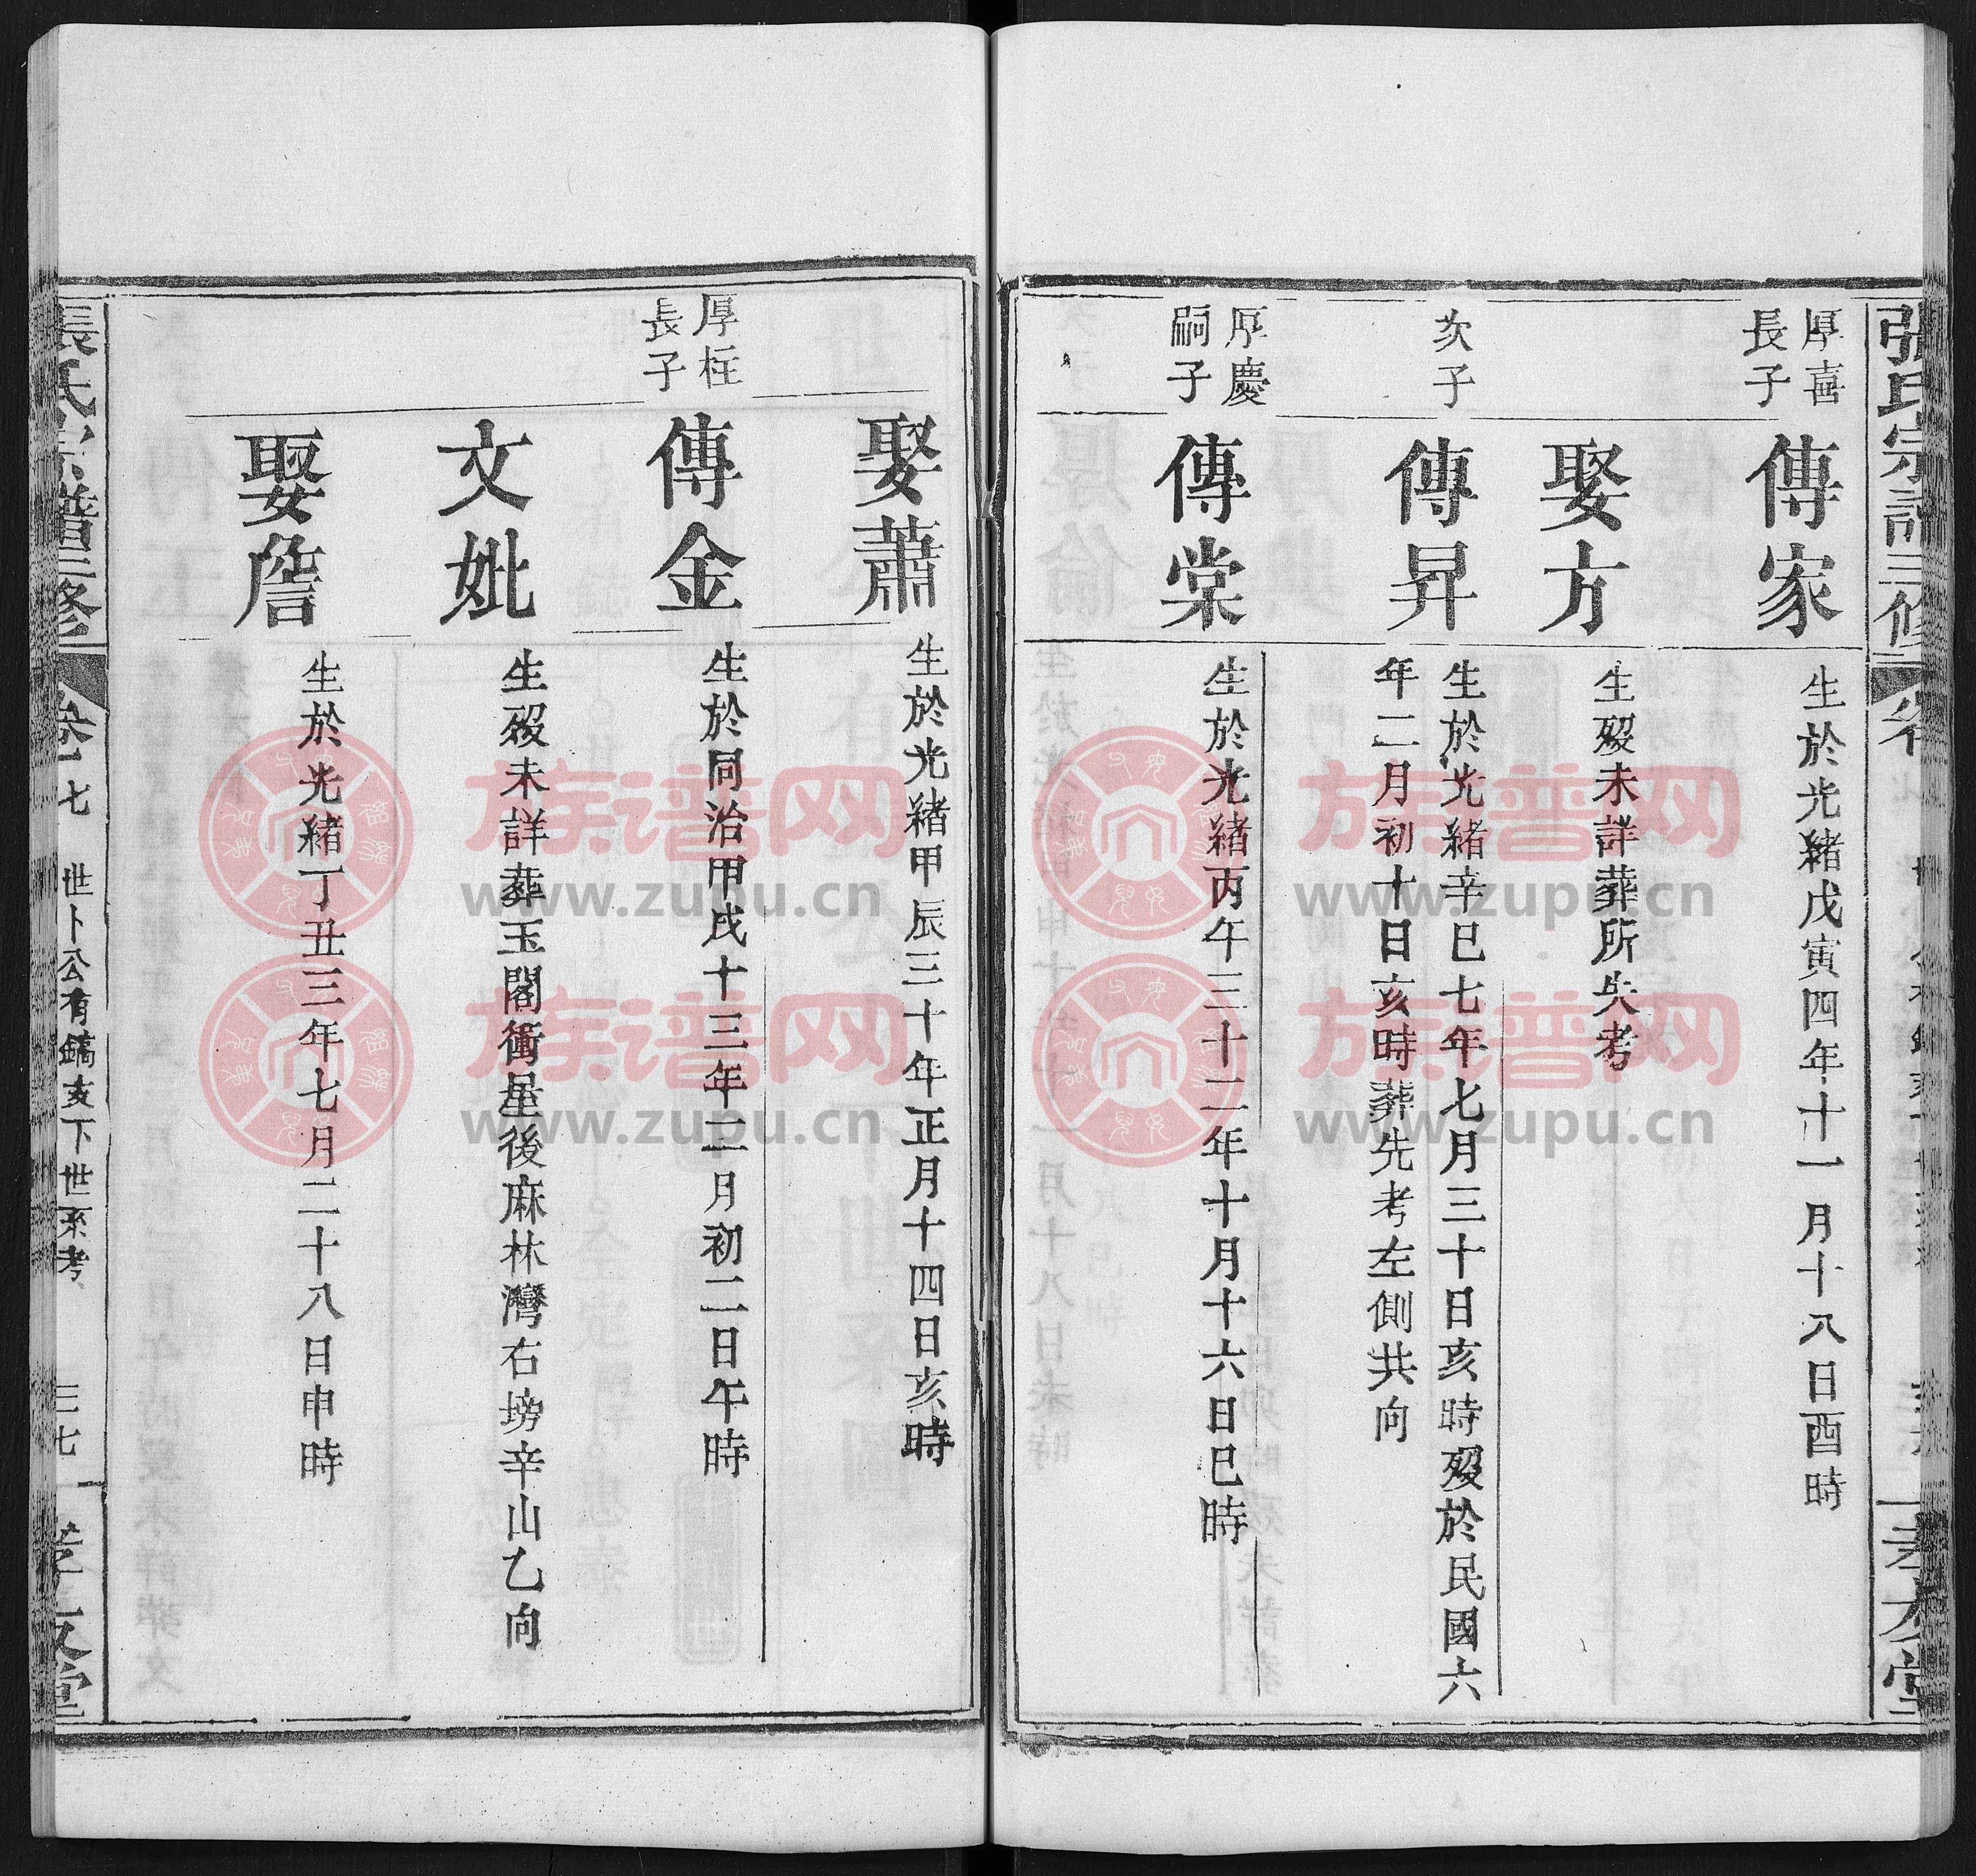 張氏宗譜三修
厚喜
長子
傳家
生於光緒戊寅四年十一月十八日酉時
娶方
生歿未詳葬所失考
次子
傳昇
生於光緒辛巳七年七月三十日亥時歿於民國六
年二月初十日亥時葬先考左側共向
厚慶
嗣子
傳棠
生於光緒丙午三十二年十月十六日巳時
娶蕭
生於光緒甲辰三十年正月十四日亥時
厚柱
長子
傳金
生於同治甲戌十三年二月初二日午時
文妣
生歿未詳葬玉閣衝星後麻林灣右塝辛山乙向
娶詹
生於光緒丁丑三年七月二十八日申時
張氏宗譜三修
卷七
世卜公有鎬亥下世系考
三七
孝友堂
族谱网
www.zupu.cn
族谱网
www.zupu.cn
族谱网
www.zupu.cn
族谱网
www.zupu.cn